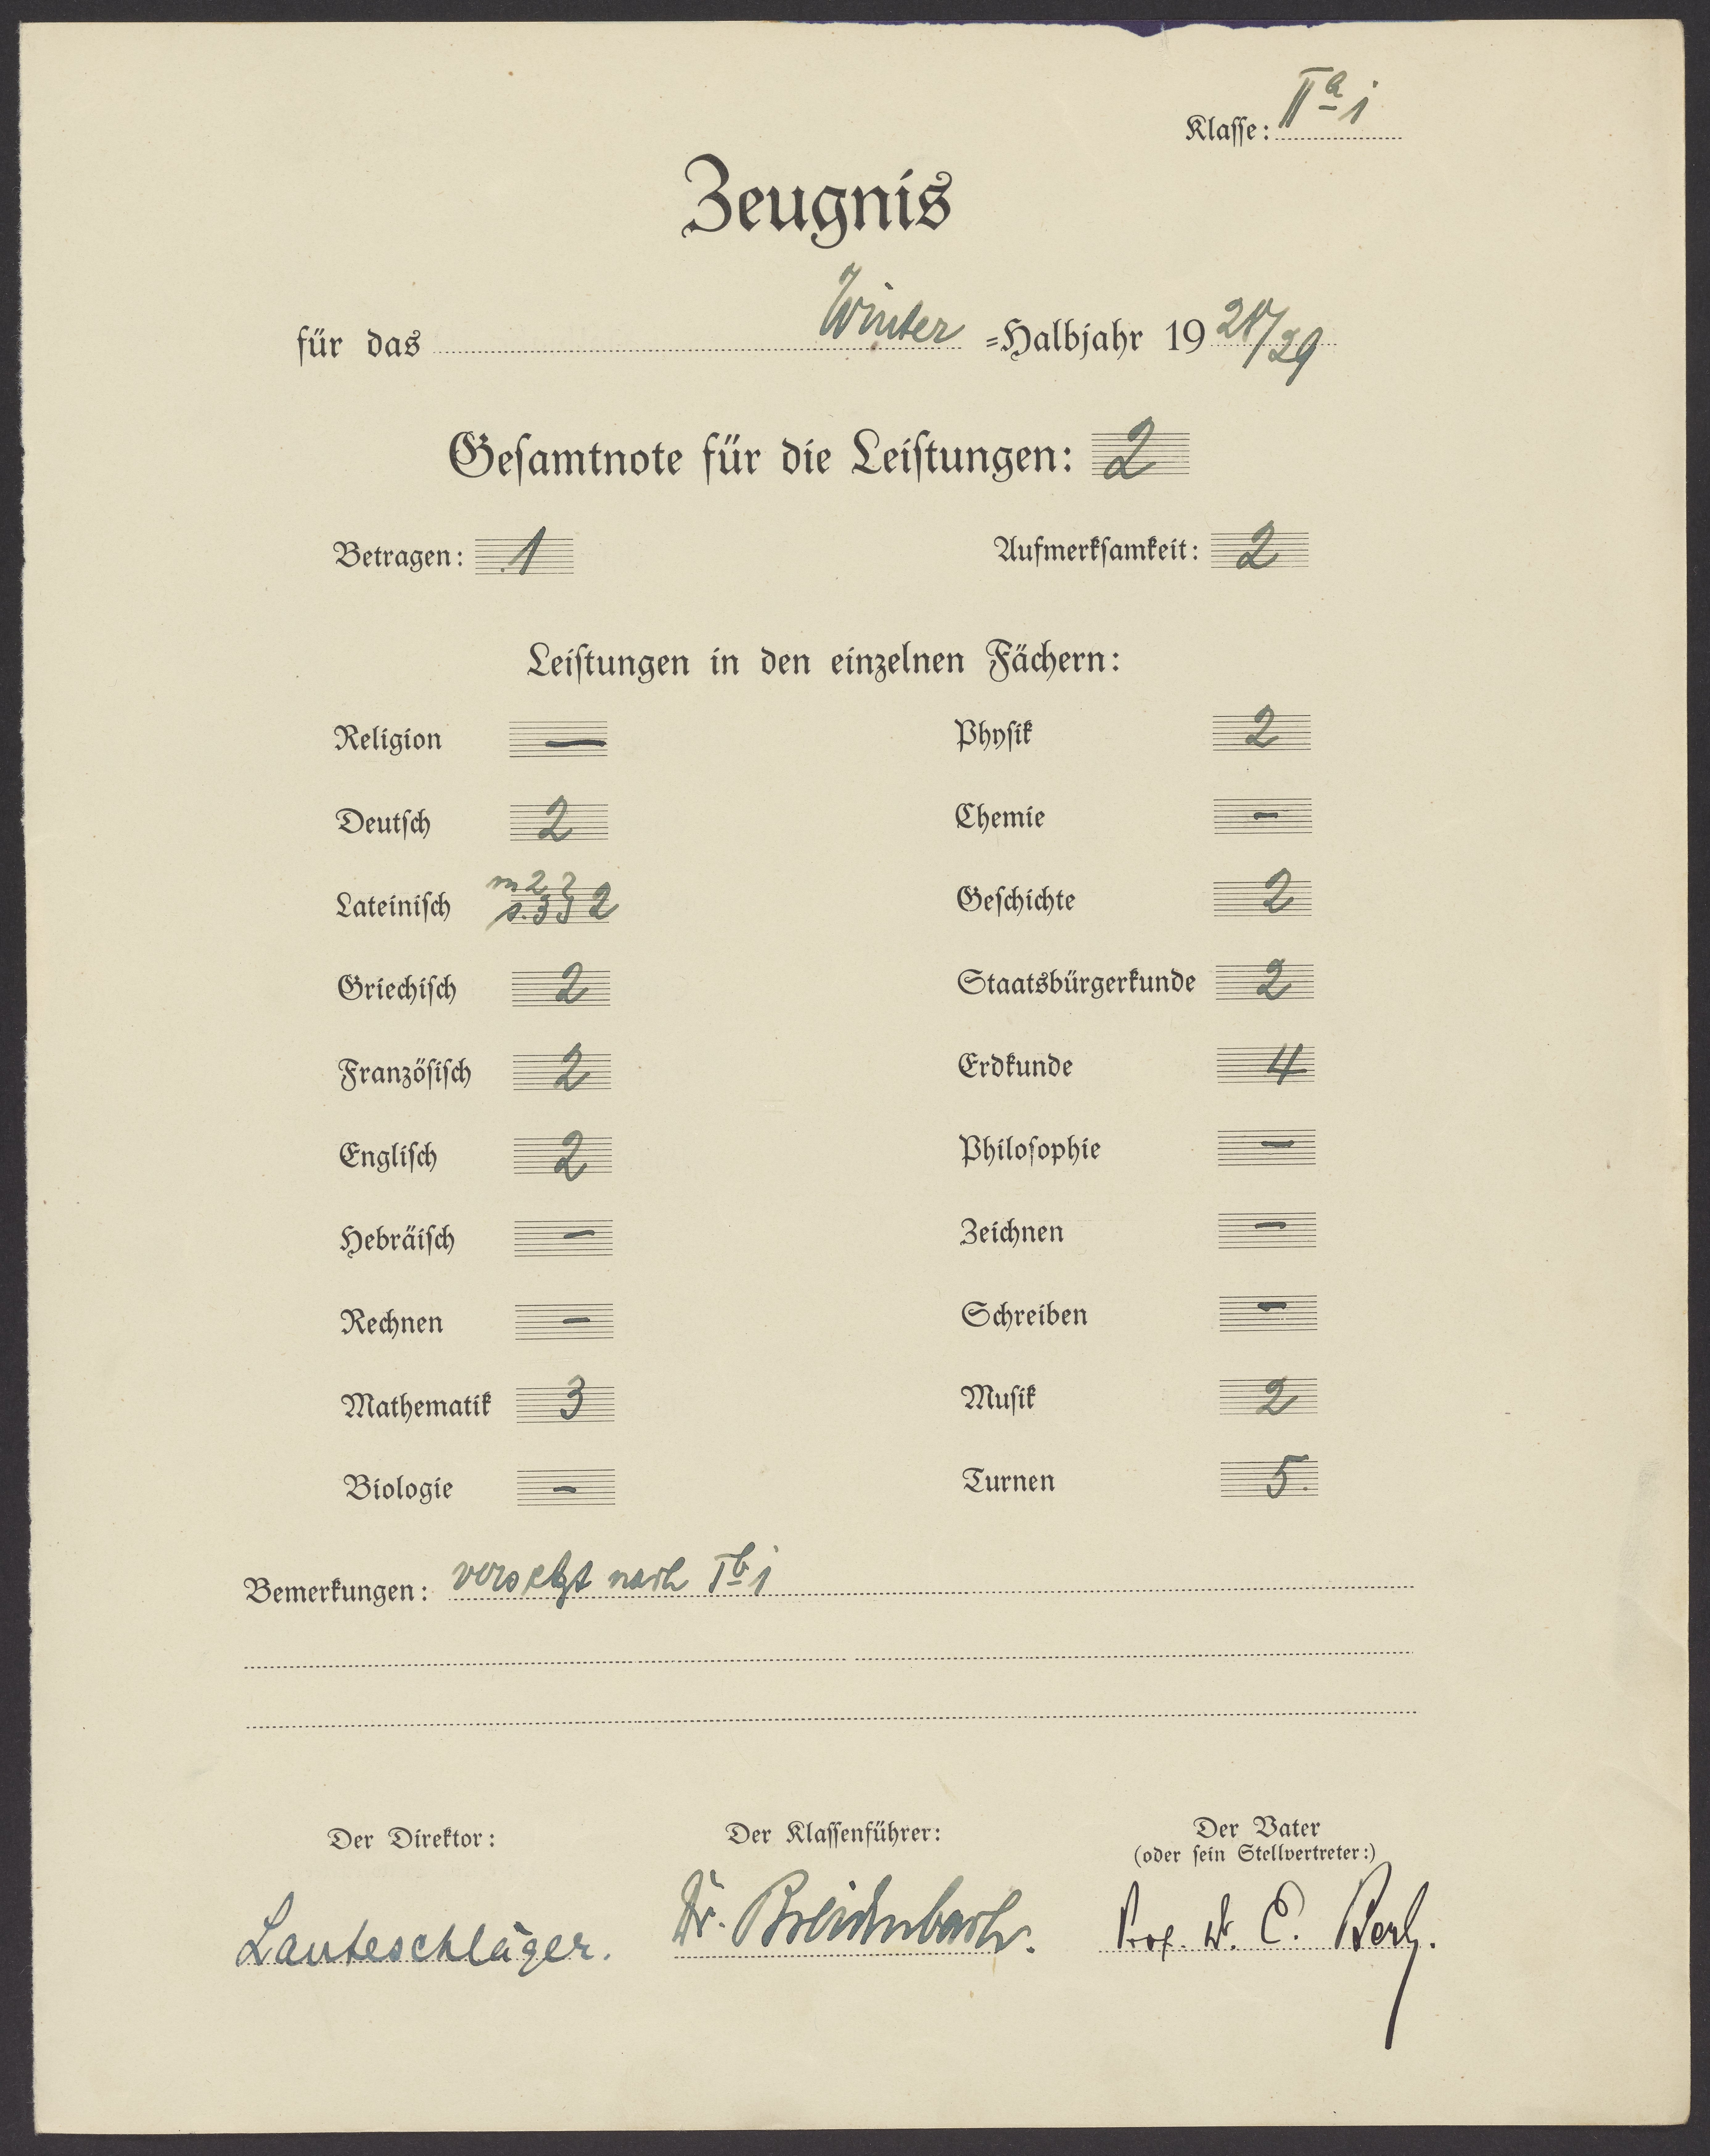 Klasse: II a i
Zeugnis
für das Winter =Halbjahr 19 28/29
Gesamtnote für die Leistungen: 2
Betragen: 1 Aufmerksamkeit: 2
Leistungen in den einzelnen Fächern:
Religion — Physik 2
Deutsch 2 Chemie —
m 2
Lateinisch s. 3 2 Geschichte 2
Griechisch 2 Staatsbürgerkunde 2
Französisch 2 Erdkunde 4
Englisch 2 Philosophie —
Hebräisch — Zeichnen —
Rechnen — Schreiben —
Mathematik 3 Musik 2
Biologie — Turnen 5.
Bemerkungen: versetzt nach I b i
Der Direktor: Der Klassenführer: Der Vater
(oder sein Stellvertreter:)
Lauteschläger. Dr. Breidenbach. Prof. Dr. E. Berl.